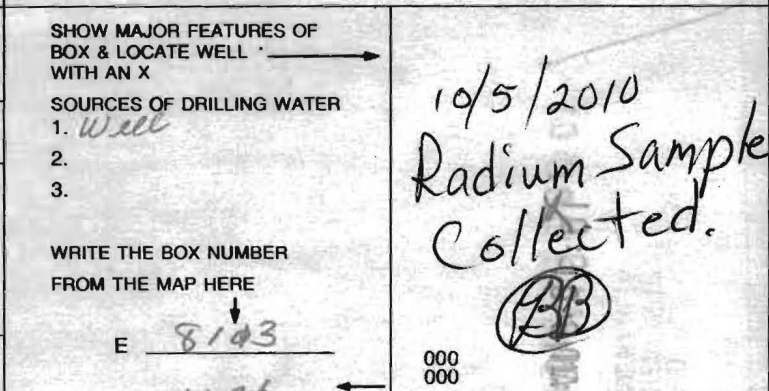 SHOW MAJOR FEATURES OF
BOX & LOCATE WELL
WITH AN X
SOURCES OF DRILLING WATER
1. Well
2.
3.
WRITE THE BOX NUMBER
FROM THE MAP HERE
E
10/5/2010
Radium Sample
Collected.
000
000